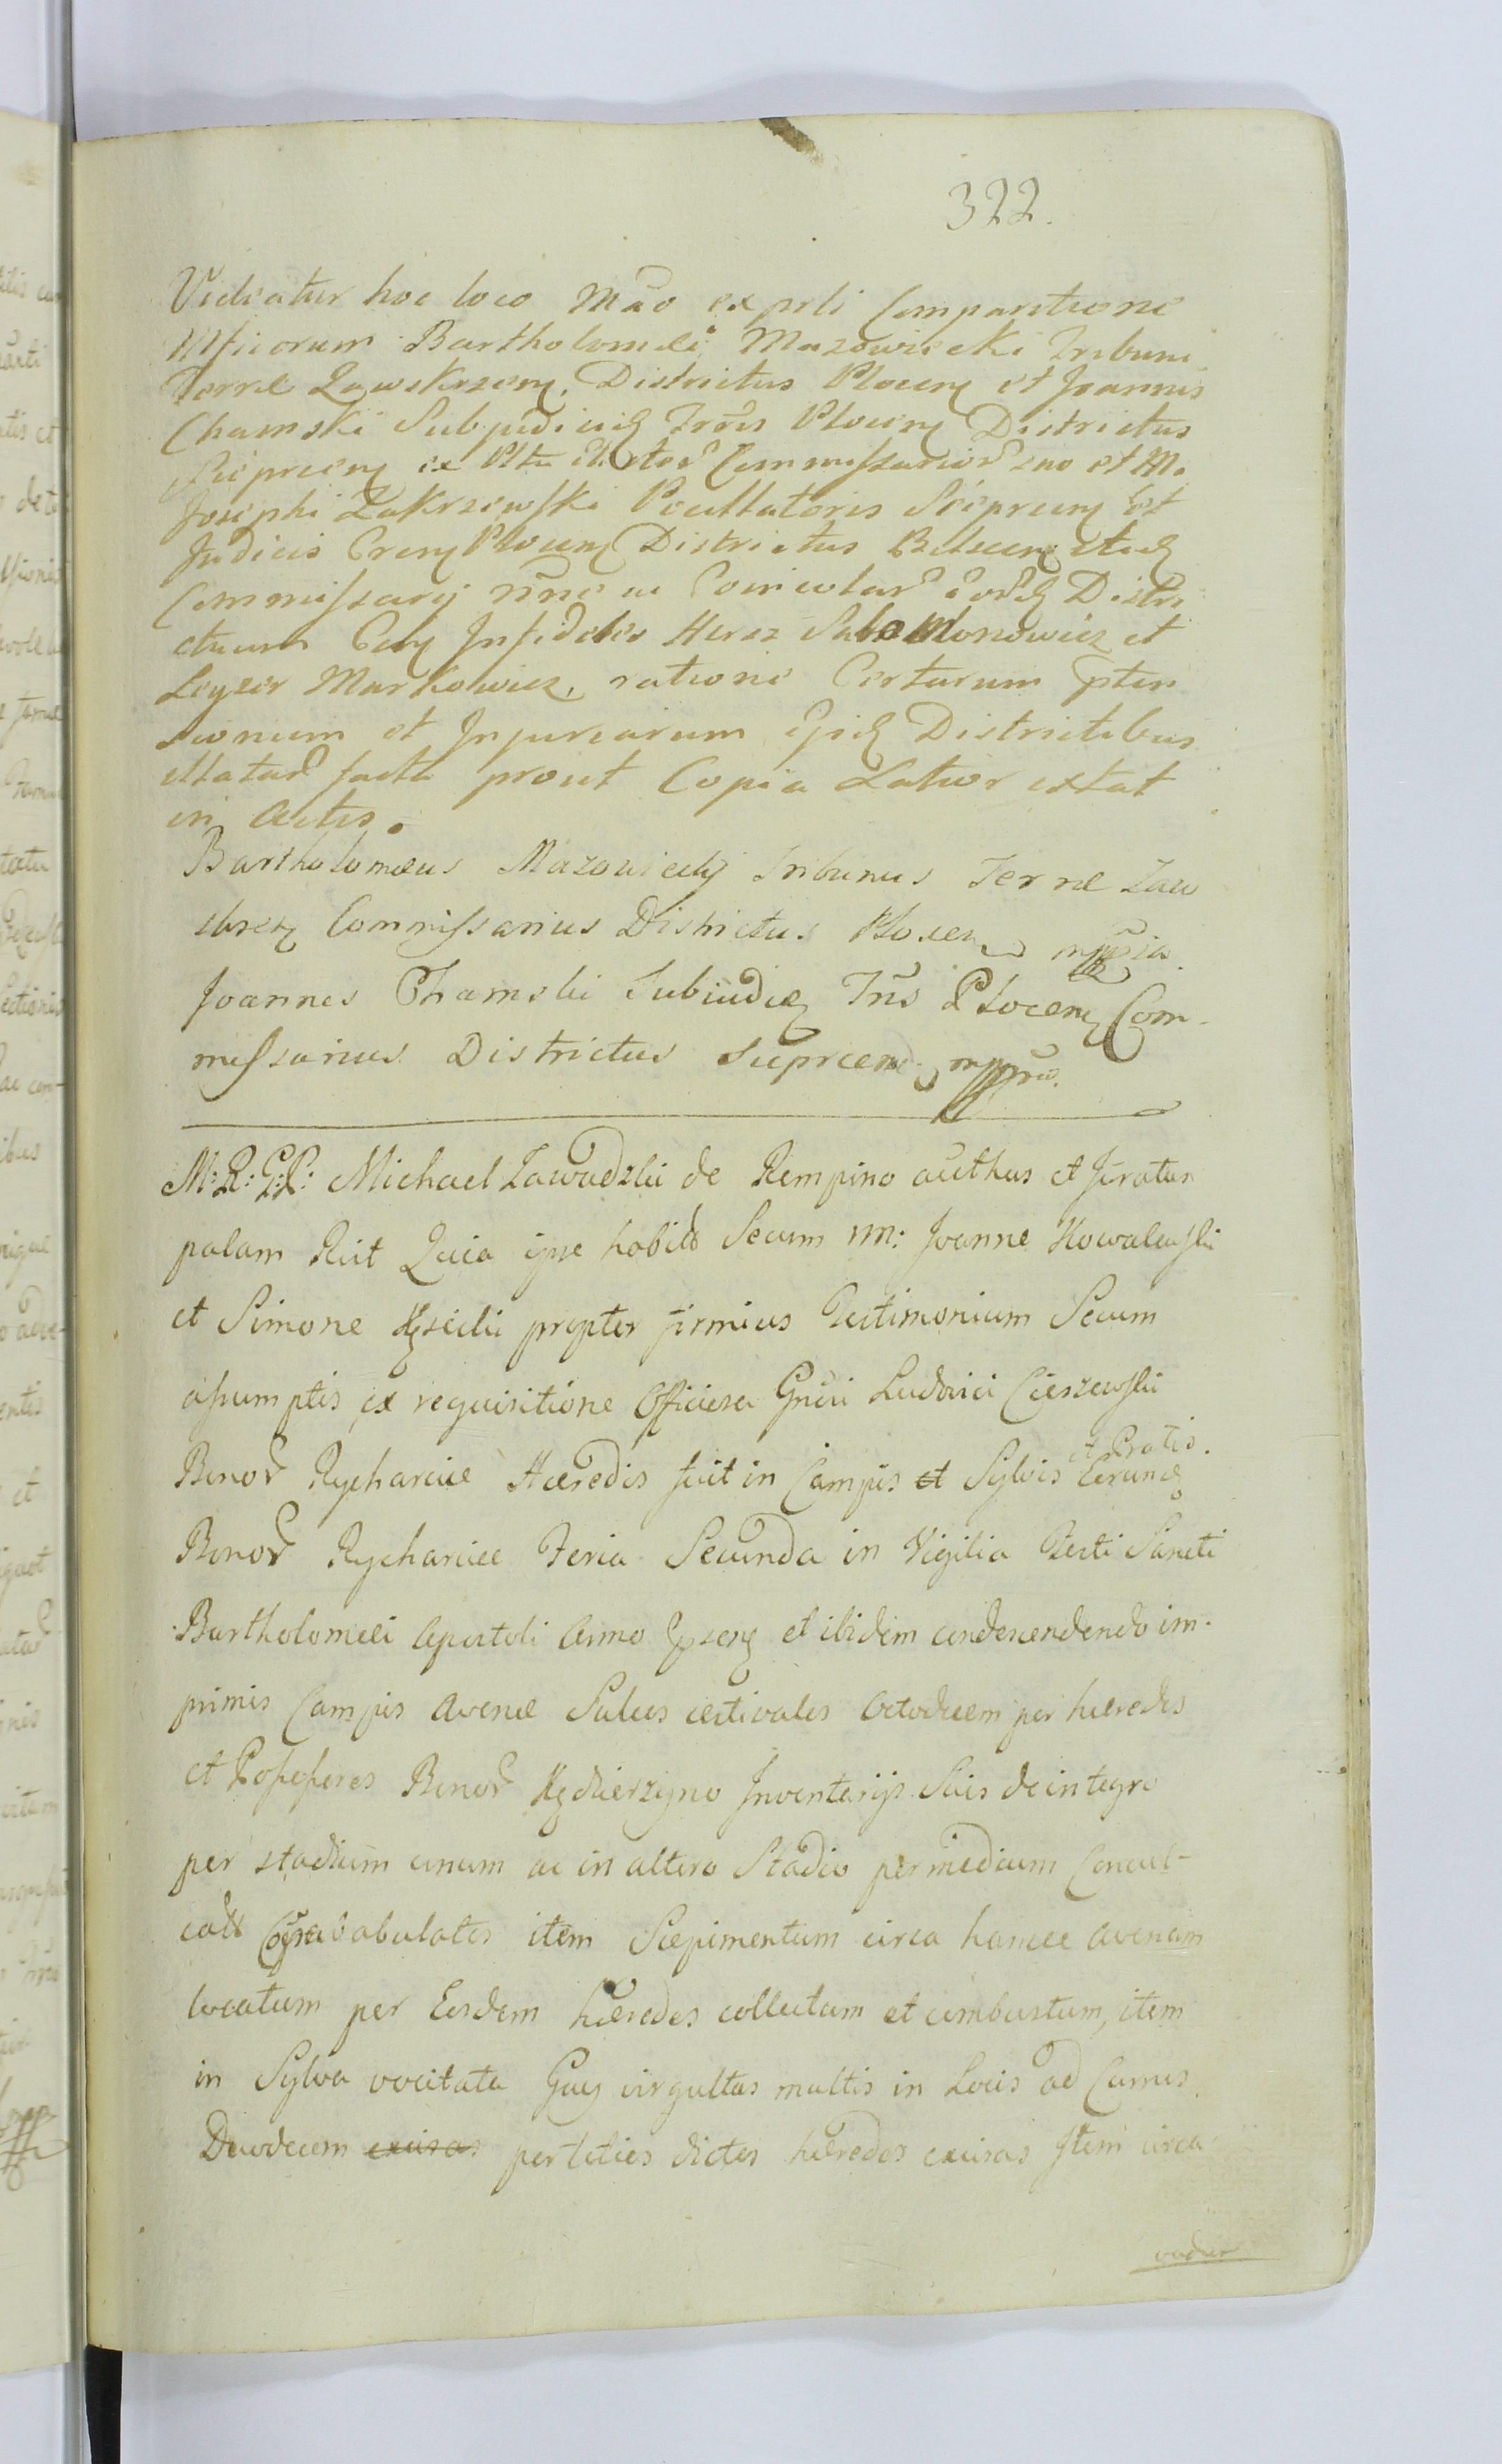 322.
Videatur hoc loco Mão ex prti Comparitione
Mficorum Bartholomæi Mazowiecki Tribuni
Terræ Zawskrzeng. Districtus Plocens et Joannis
Chamski Subjudicis Trõris Plocens Districtus
Sieprcens ex Commissarior uno et M.
Josephi Zakrzewski Pocillatoris Sieprcens et
Judicis Crens Plocens Districtus Bielscens
Commissarij nñe ac Distri
ctuum Infideles Hersz Salomonowicz et
Leyzer Markowicz, ratione Certarum pten
sionum et Injuriarum Districtibus
illatar facta prout Copia Latior extat
in Actis.
Bartholomæus Mazowiecky Tribunus Terræ Zaw
skrzeng Commissarius Districtus Plocens mppria.
Joannes Chamski Subiudex Tñris Plocens Com-
missarius Districtus Sieprcens mppria.
M: R: G: P: Michael Zawadzki de Rempino authus et Juratus
palam Rit Quia ipse habitis Secum nn: Joanne Kowalewski
et Simone propter firmius Testimonium Secum
assumptis ex requisitione Officiosa Gñsi Ludovici Cieszewski
et Pratis.
Bonor Rycharcice Hæredis fuit in Campis et Sylvis Eorund
Bonor Rycharcice Feria Secunda in Vigilia Festi Sancti
Bartholomæi Apostoli Anno et ibidem condescendendo im-
primis Campis Avenæ Sulcos æstivales Octodecem per hæredes
et Possessores Bonor Kędzierzyno Inventarijs Suis de integro
per stadium unum ac in altero Stadio per medium Concul-
catos item Sæpimentum circa hancce avenam
locatum per Eosdem hæredes collectum et combustum, item
in Sylva vocitata Gay virgultas multis in Locis ad Currus
Duodecem excisas per toties dictos hæredes excisas Item circa